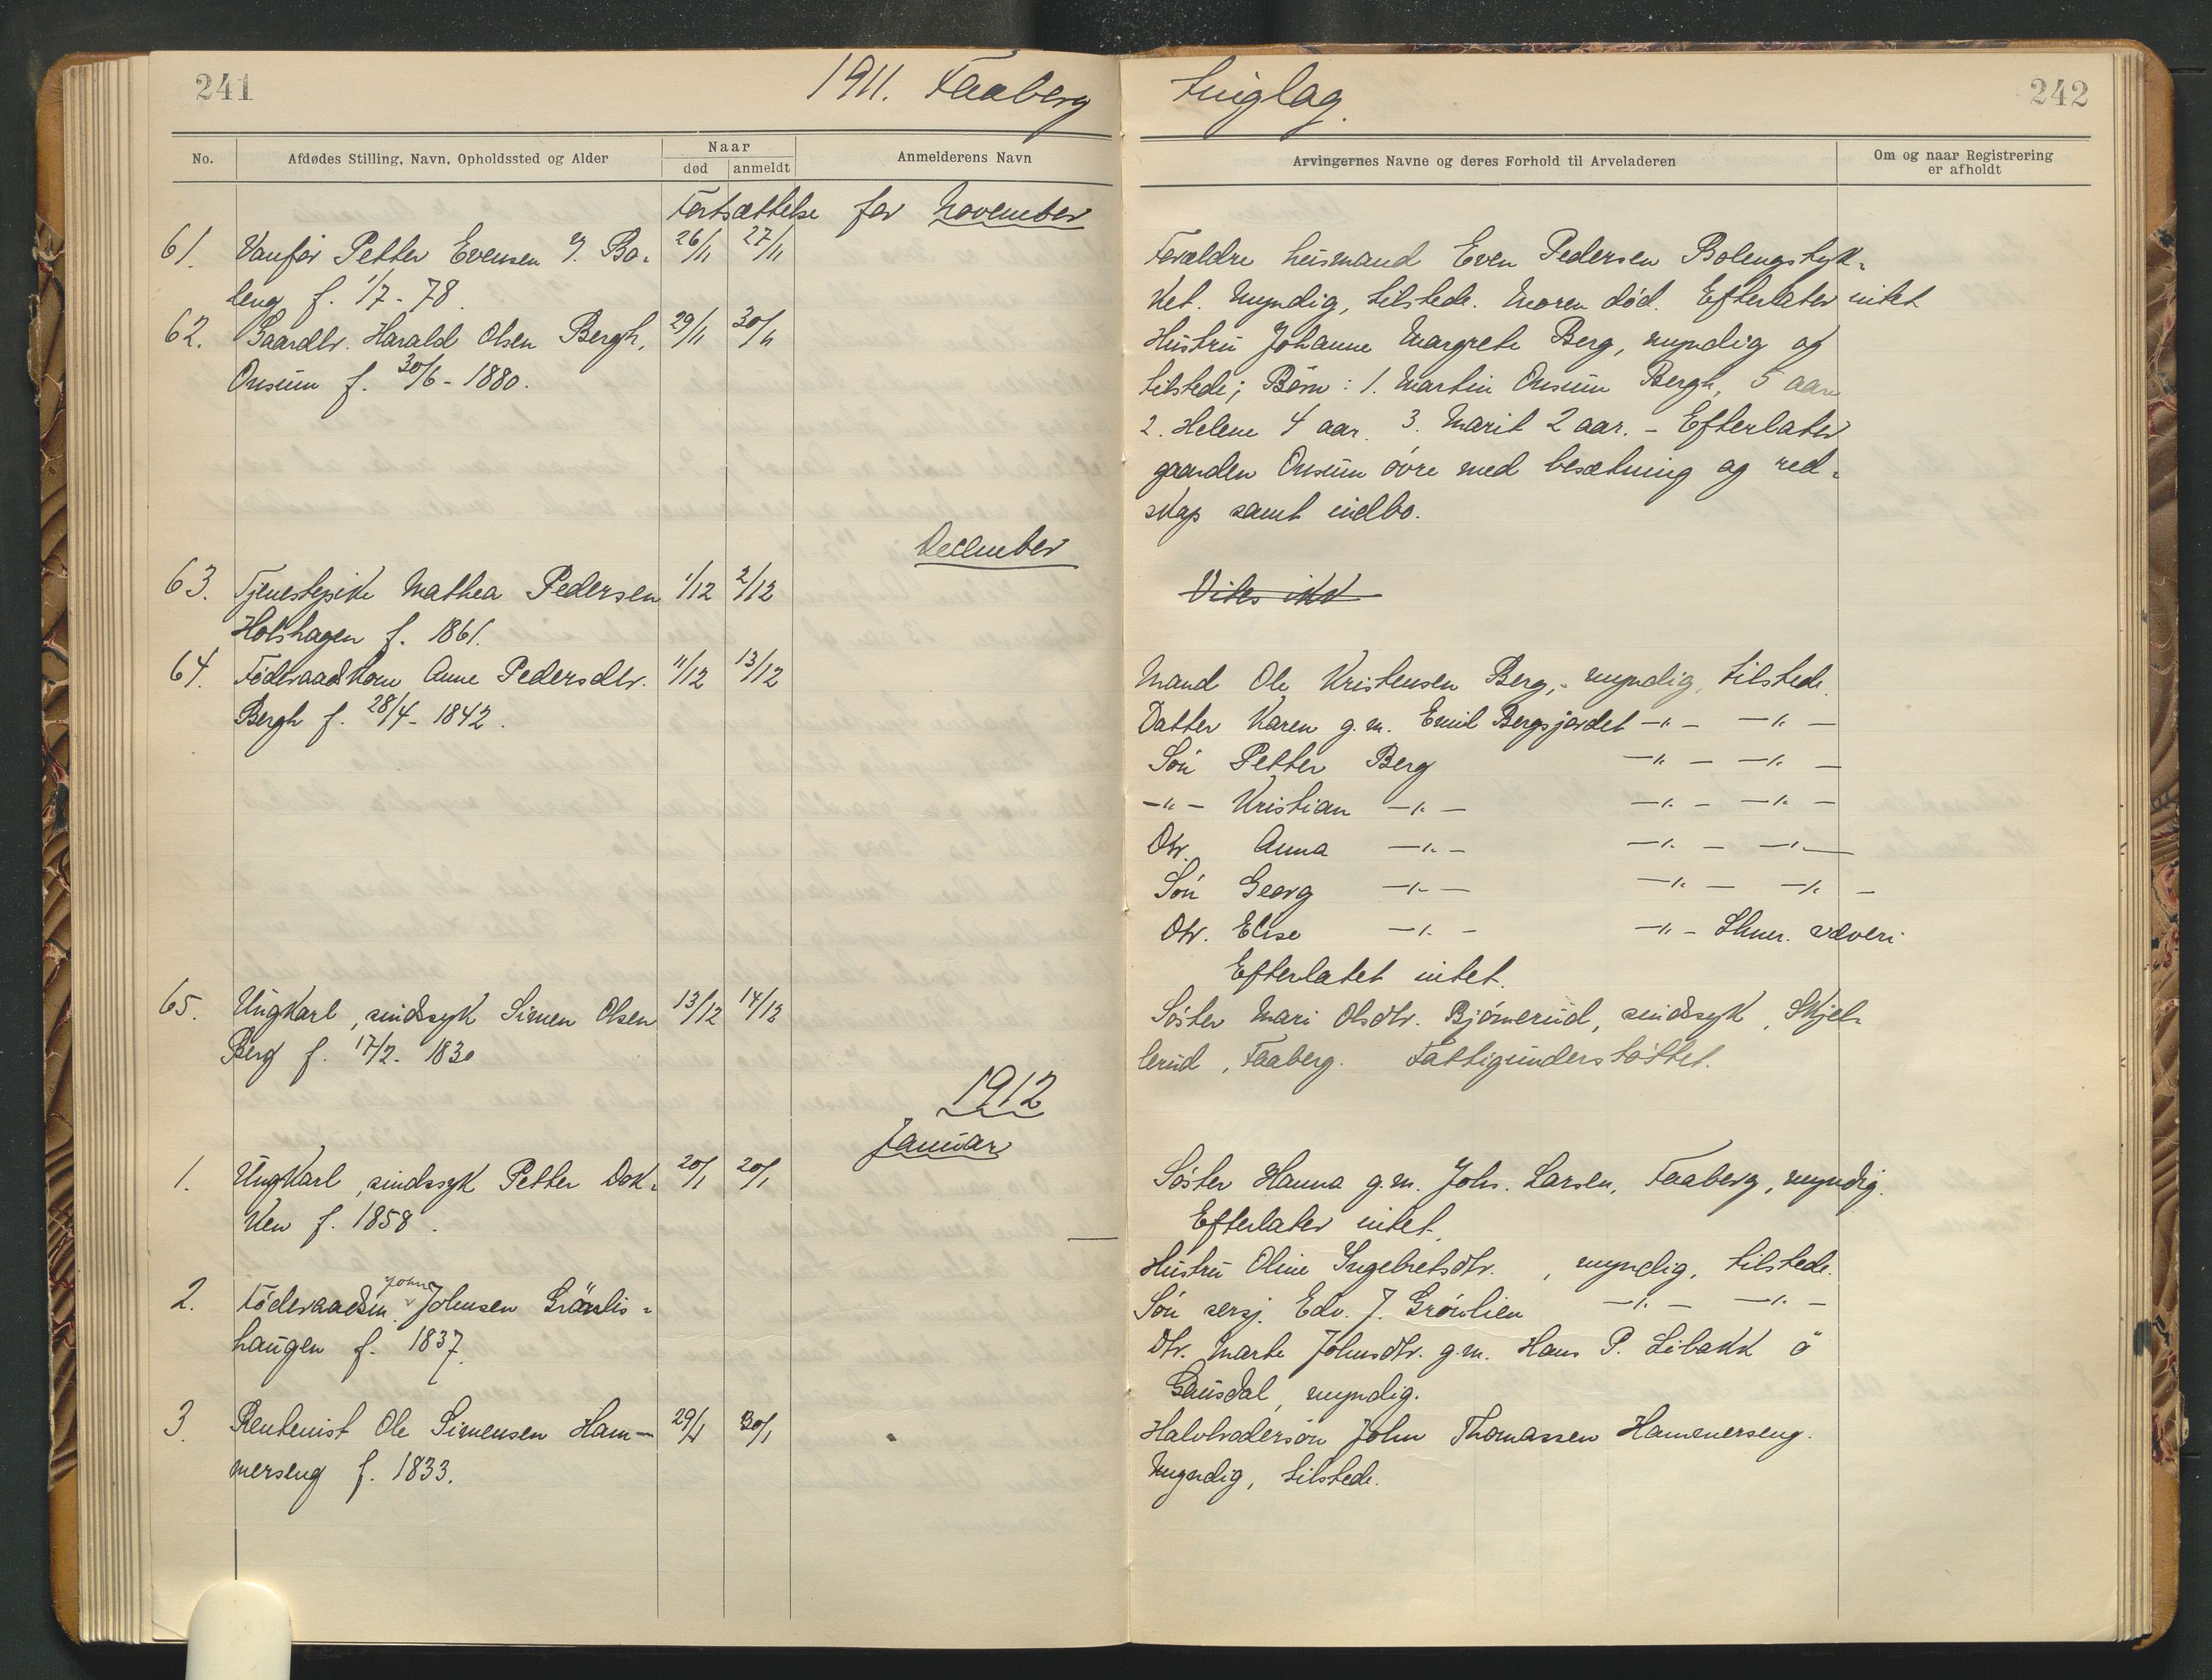 241
1911. Faaberg
No.
Afdødes Stilling, Navn, Opholdssted og Alder
Naar
død
anmeldt
Anmelderens Navn
Fortsættelse for November
61. Vanfør Petter Evensen Y. Bo- 26/11 27/11
leng f. 1/7 - 78.
62. Gaardbr. Harald Olsen Bergh, 29/11 30/11
Onsum f. 30/6 - 1880.
December
63. Tjenestepike Mathea Pedersen 1/12 2/12
Holshagen f. 1861.
64. Föderaadskone Anne Pedersdtr. 11/12 13/12
Bergh f. 28/4 - 1842.
65. Ungkarl, sindssyk Simen Olsen 13/12 14/12
Berg f. 17/2 - 1830
1912
Januar
1. Ungkarl, sindssyk Petter Dok- 20/1 20/1
ken f. 1858.
John
2. Föderaadsm. Johnsen Grönlis-
haugen f. 1837.
3. Rentenist Ole Simensen Ham- 29/1 30/1
merseng f. 1833.
242
tinglag.
Arvingernes Navne og deres Forhold til Arveladeren
Om og naar Registrering
er afholdt
Forældre husmand Even Pedersen Bolengstyk-
ket. Myndig, tilstede. Moren död. Efterlater intet
Hustru Johanne Margrete Berg, myndig og
tilstede; Börn: 1. Martin Onsum Bergh, 5 aar
2. Helene 4 aar. 3. Marit 2 aar. - Efterlater
gaarden Onsum övre med besætning og red-
skap samt indbo.
Vites ikke
Mand Ole Kristensen Berg, - myndig, tilstede.
Datter Karen g.m. Emil Bergsjordet -"- -"-
Sön Petter Berg -"- -"-
-"- Kristian -"- -"- -"-
Dtr. Anna -"- -"- -"-
Sön Georg -"- -"- -"-
Dtr. Elise -"- -"- Lhmr. væveri
Efterlatet intet.
Söster Mari Olsdtr. Björnerud, sindssyk, Skjel-
lerud, Faaberg. Fattigunderstöttet.
Söster Hanna g.m. Johs. Larsen, Faaberg, myndig.
Efterlater intet.
Hustru Oline Ingebretsdtr., myndig, tilstede.
Sön sersj. Edv. J. Grönlien -"- -"-
Dtr. Marte Johnsdtr. g.m. Hans P. Libakk ö
Gausdal, myndig.
Halvbrodersön John Thomassen Hammerseng.
Myndig, tilstede.